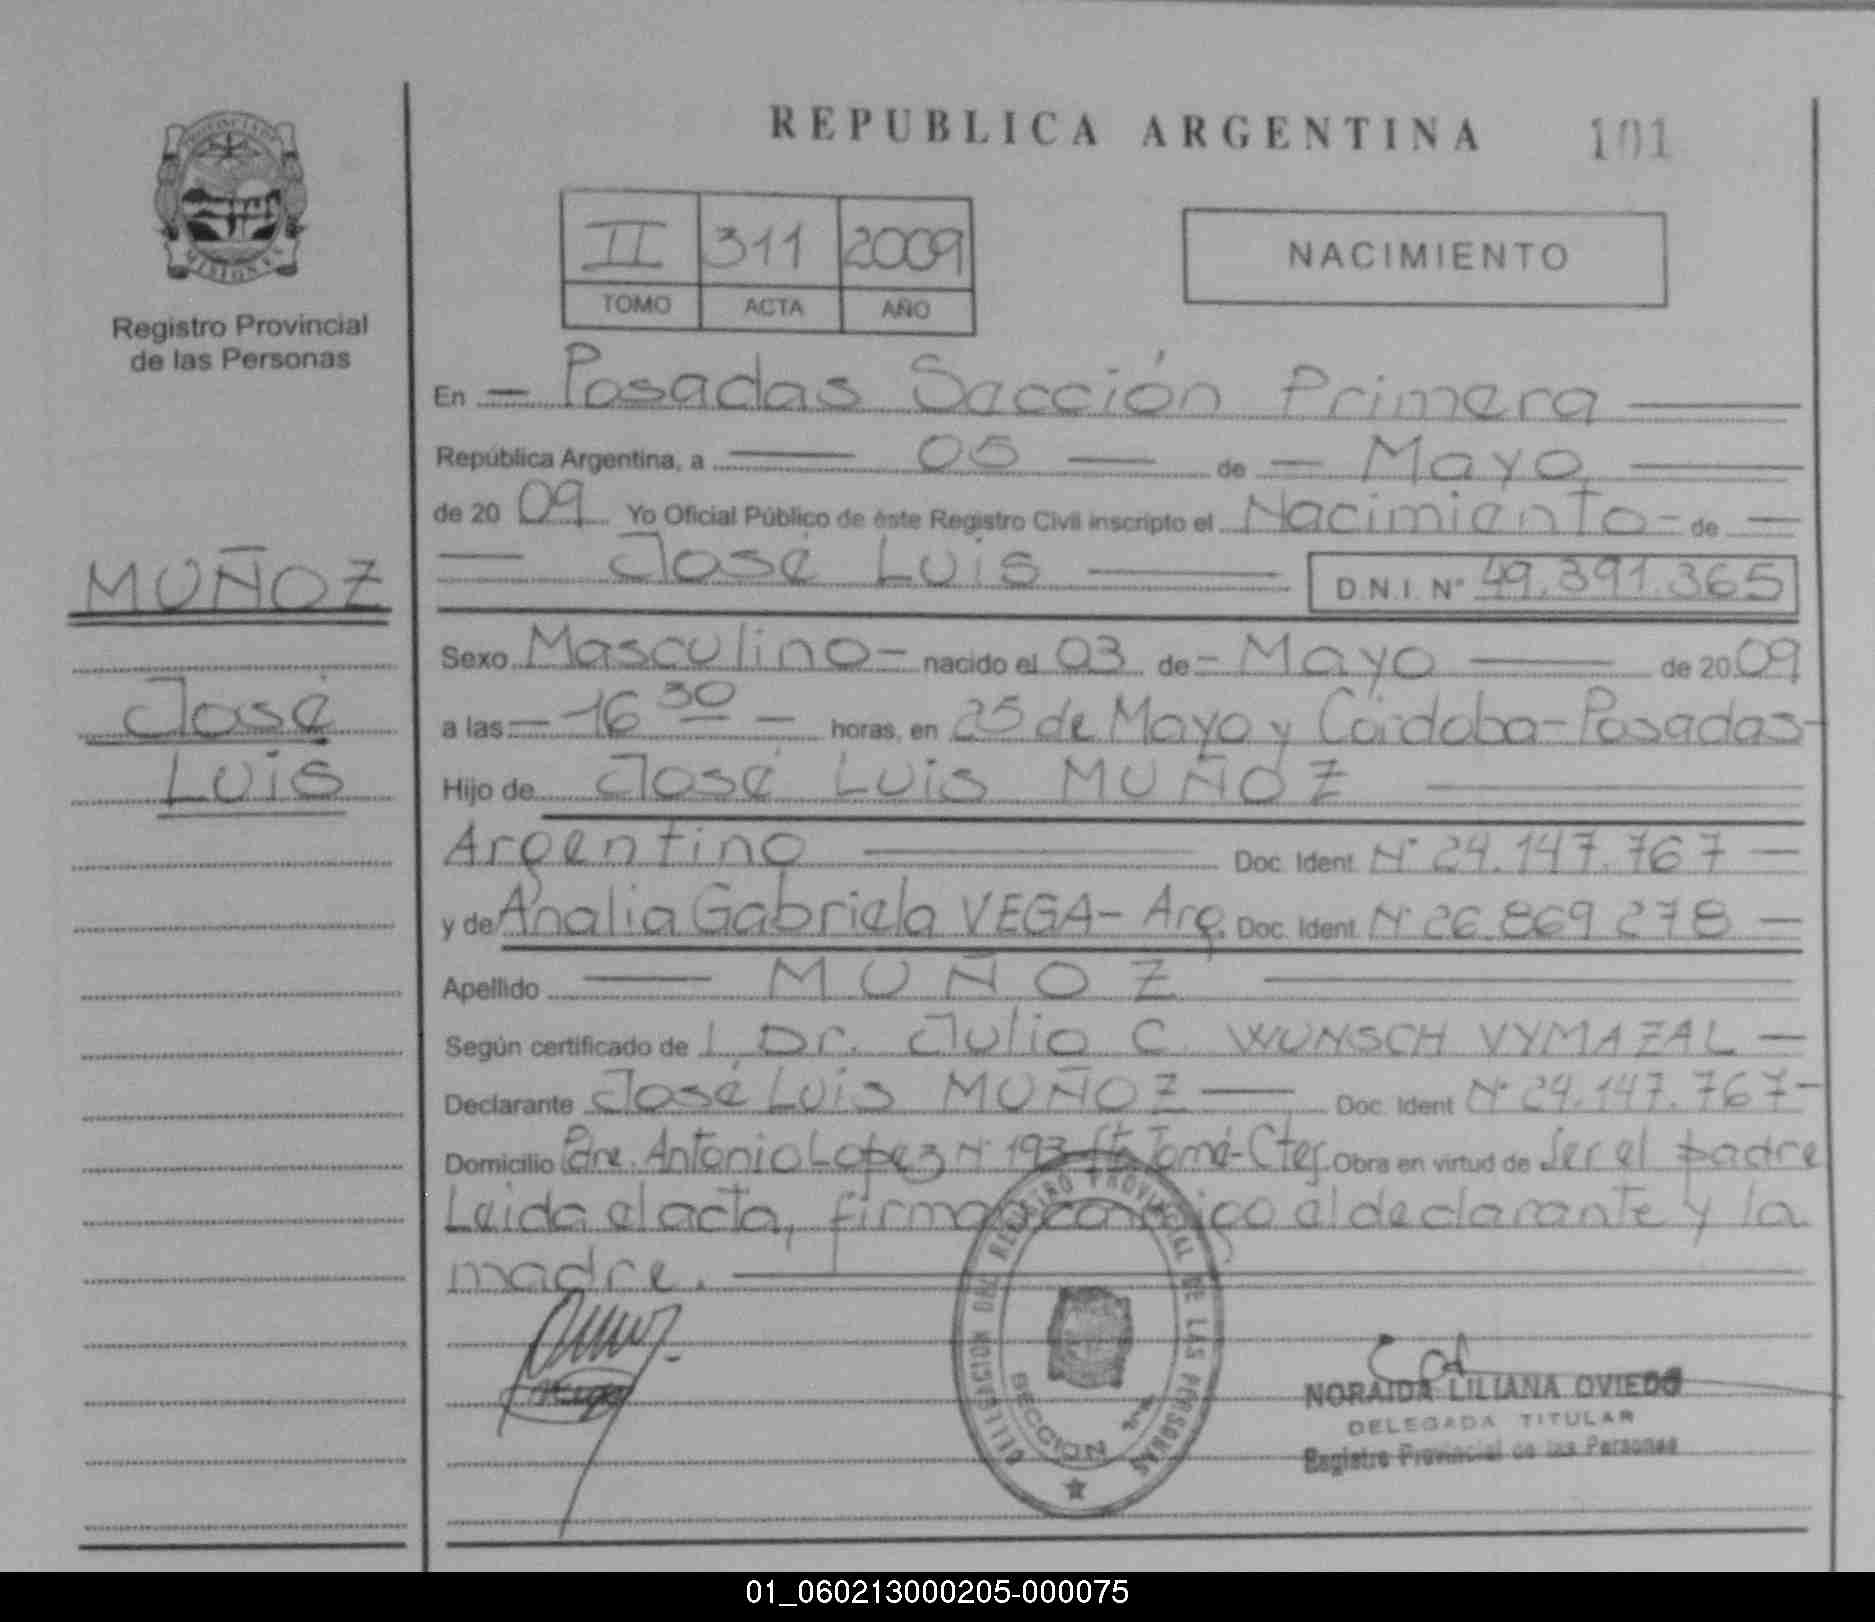 REPUBLICA ARGENTINA 101
PROVINCIA DE
MISIONES
Registro Provincial
de las Personas
II 311 2009
TOMO ACTA AÑO
NACIMIENTO
En Posadas Sección Primera
República Argentina, a 05 de Mayo
de 2009 Yo Oficial Público de éste Registro Civil inscripto el Nacimiento de
José Luis D.N.I. Nº 49.391.365
MUÑOZ
José
Luis
Sexo Masculino nacido el 03 de Mayo de 2009
a las 16 30 horas, en 25 de Mayo y Córdoba-Posadas-
Hijo de José Luis MUÑOZ
Argentino Doc. Ident. Nº 24.147.767
y de Analia Gabriela VEGA- Arg. Doc. Ident. Nº 26.869.278
Apellido MUÑOZ
Según certificado de Dr. Julio C. WUNSCH VYMAZAL
Declarante José Luis MUÑOZ Doc. Ident Nº 24.147.767-
Domicilio Pdre. Antonio Lopez Nº 193 Sto Tomé-Ctes. Obra en virtud de Ser el padre
Leida el acta, firman conmigo el declarante y la
madre.
DELEGACION DEL REGISTRO PROVINCIAL DE LAS PERSONAS
SECCION 1ra
NORAIDA LILIANA OVIEDO
DELEGADA TITULAR
Registro Provincial de las Personas
01_060213000205-000075